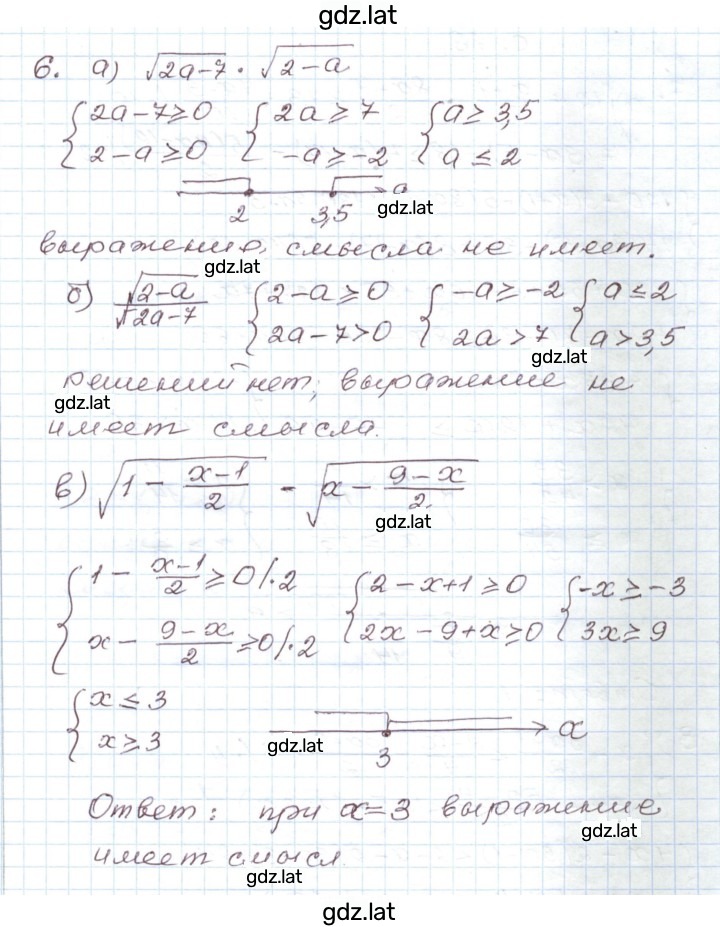 gdz.lat
6. а) √(2a-7) · √(2-a)
{2a-7≥0 {2a≥7 {a≥3,5
{2-a≥0 {-a≥-2 {a≤2
a
2 3,5 gdz.lat
выражение смысла не имеет.
gdz.lat
б) √(2-a)/√(2a-7) {2-a≥0 {-a≥-2 {a≤2
{2a-7>0 {2a>7 {a>3,5
gdz.lat
решений нет, выражение не
gdz.lat
имеет смысла.
в) √(1 - (x-1)/2) - √(x - (9-x)/2)
gdz.lat
{1 - (x-1)/2 ≥0 /·2 {2-x+1≥0 {-x≥-3
{x - (9-x)/2 ≥0 /·2 {2x-9+x≥0 {3x≥9
{x≤3
{x≥3 gdz.lat x
3
Ответ: при x=3 выражение
gdz.lat
имеет смысл.
gdz.lat
gdz.lat